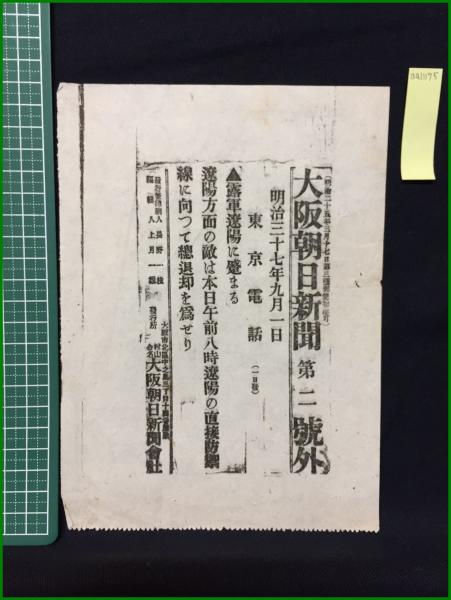 (明治二十五年三月十七日第三種郵便物認可)
大阪朝日新聞 第二 號外
明治三十七年九月一日
東京電話 (一日發)
▲露軍遼陽に蹙まる
遼陽方面の敵は本日午前八時遼陽の直接防禦
線に向つて總退却を為せり
編輯人 上月一
發行所
村山合名 大阪朝日新聞會社